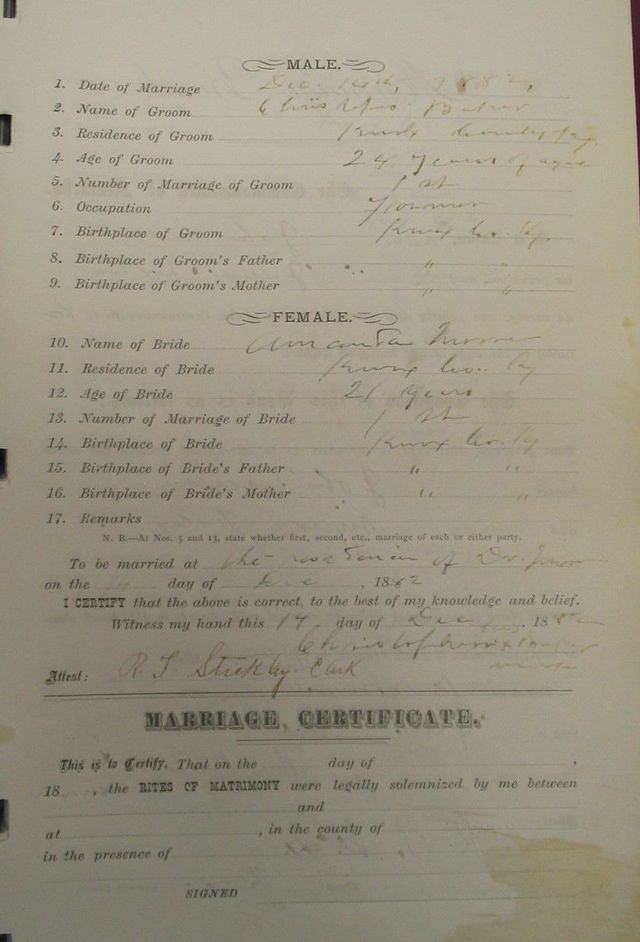 MALE.
1. Date of Marriage Dec. 14th, 1882,
2. Name of Groom Baker
3. Residence of Groom Knox County Ky
4. Age of Groom 24 years of age
5. Number of Marriage of Groom 1 st
6. Occupation Farmer
7. Birthplace of Groom Knox Co. Ky.
8. Birthplace of Groom's Father " "
9. Birthplace of Groom's Mother " "
FEMALE.
10. Name of Bride Amanda
11. Residence of Bride Knox Co. Ky
12. Age of Bride 21 years
13. Number of Marriage of Bride 1 st
14. Birthplace of Bride Knox Co. Ky
15. Birthplace of Bride's Father " "
16. Birthplace of Bride's Mother " "
17. Remarks
N. B.—At Nos. 5 and 13, state whether first, second, etc., marriage of each or either party.
To be married at the of
on the day of Dec , 1882
I CERTIFY that the above is correct, to the best of my knowledge and belief.
Witness my hand this 14. day of Dec , 1882
mark
Attest: Clerk
MARRIAGE CERTIFICATE.
This is to Certify, That on the day of ,
18 , the RITES OF MATRIMONY were legally solemnized by me between
and
at , in the county of
in the presence of
SIGNED